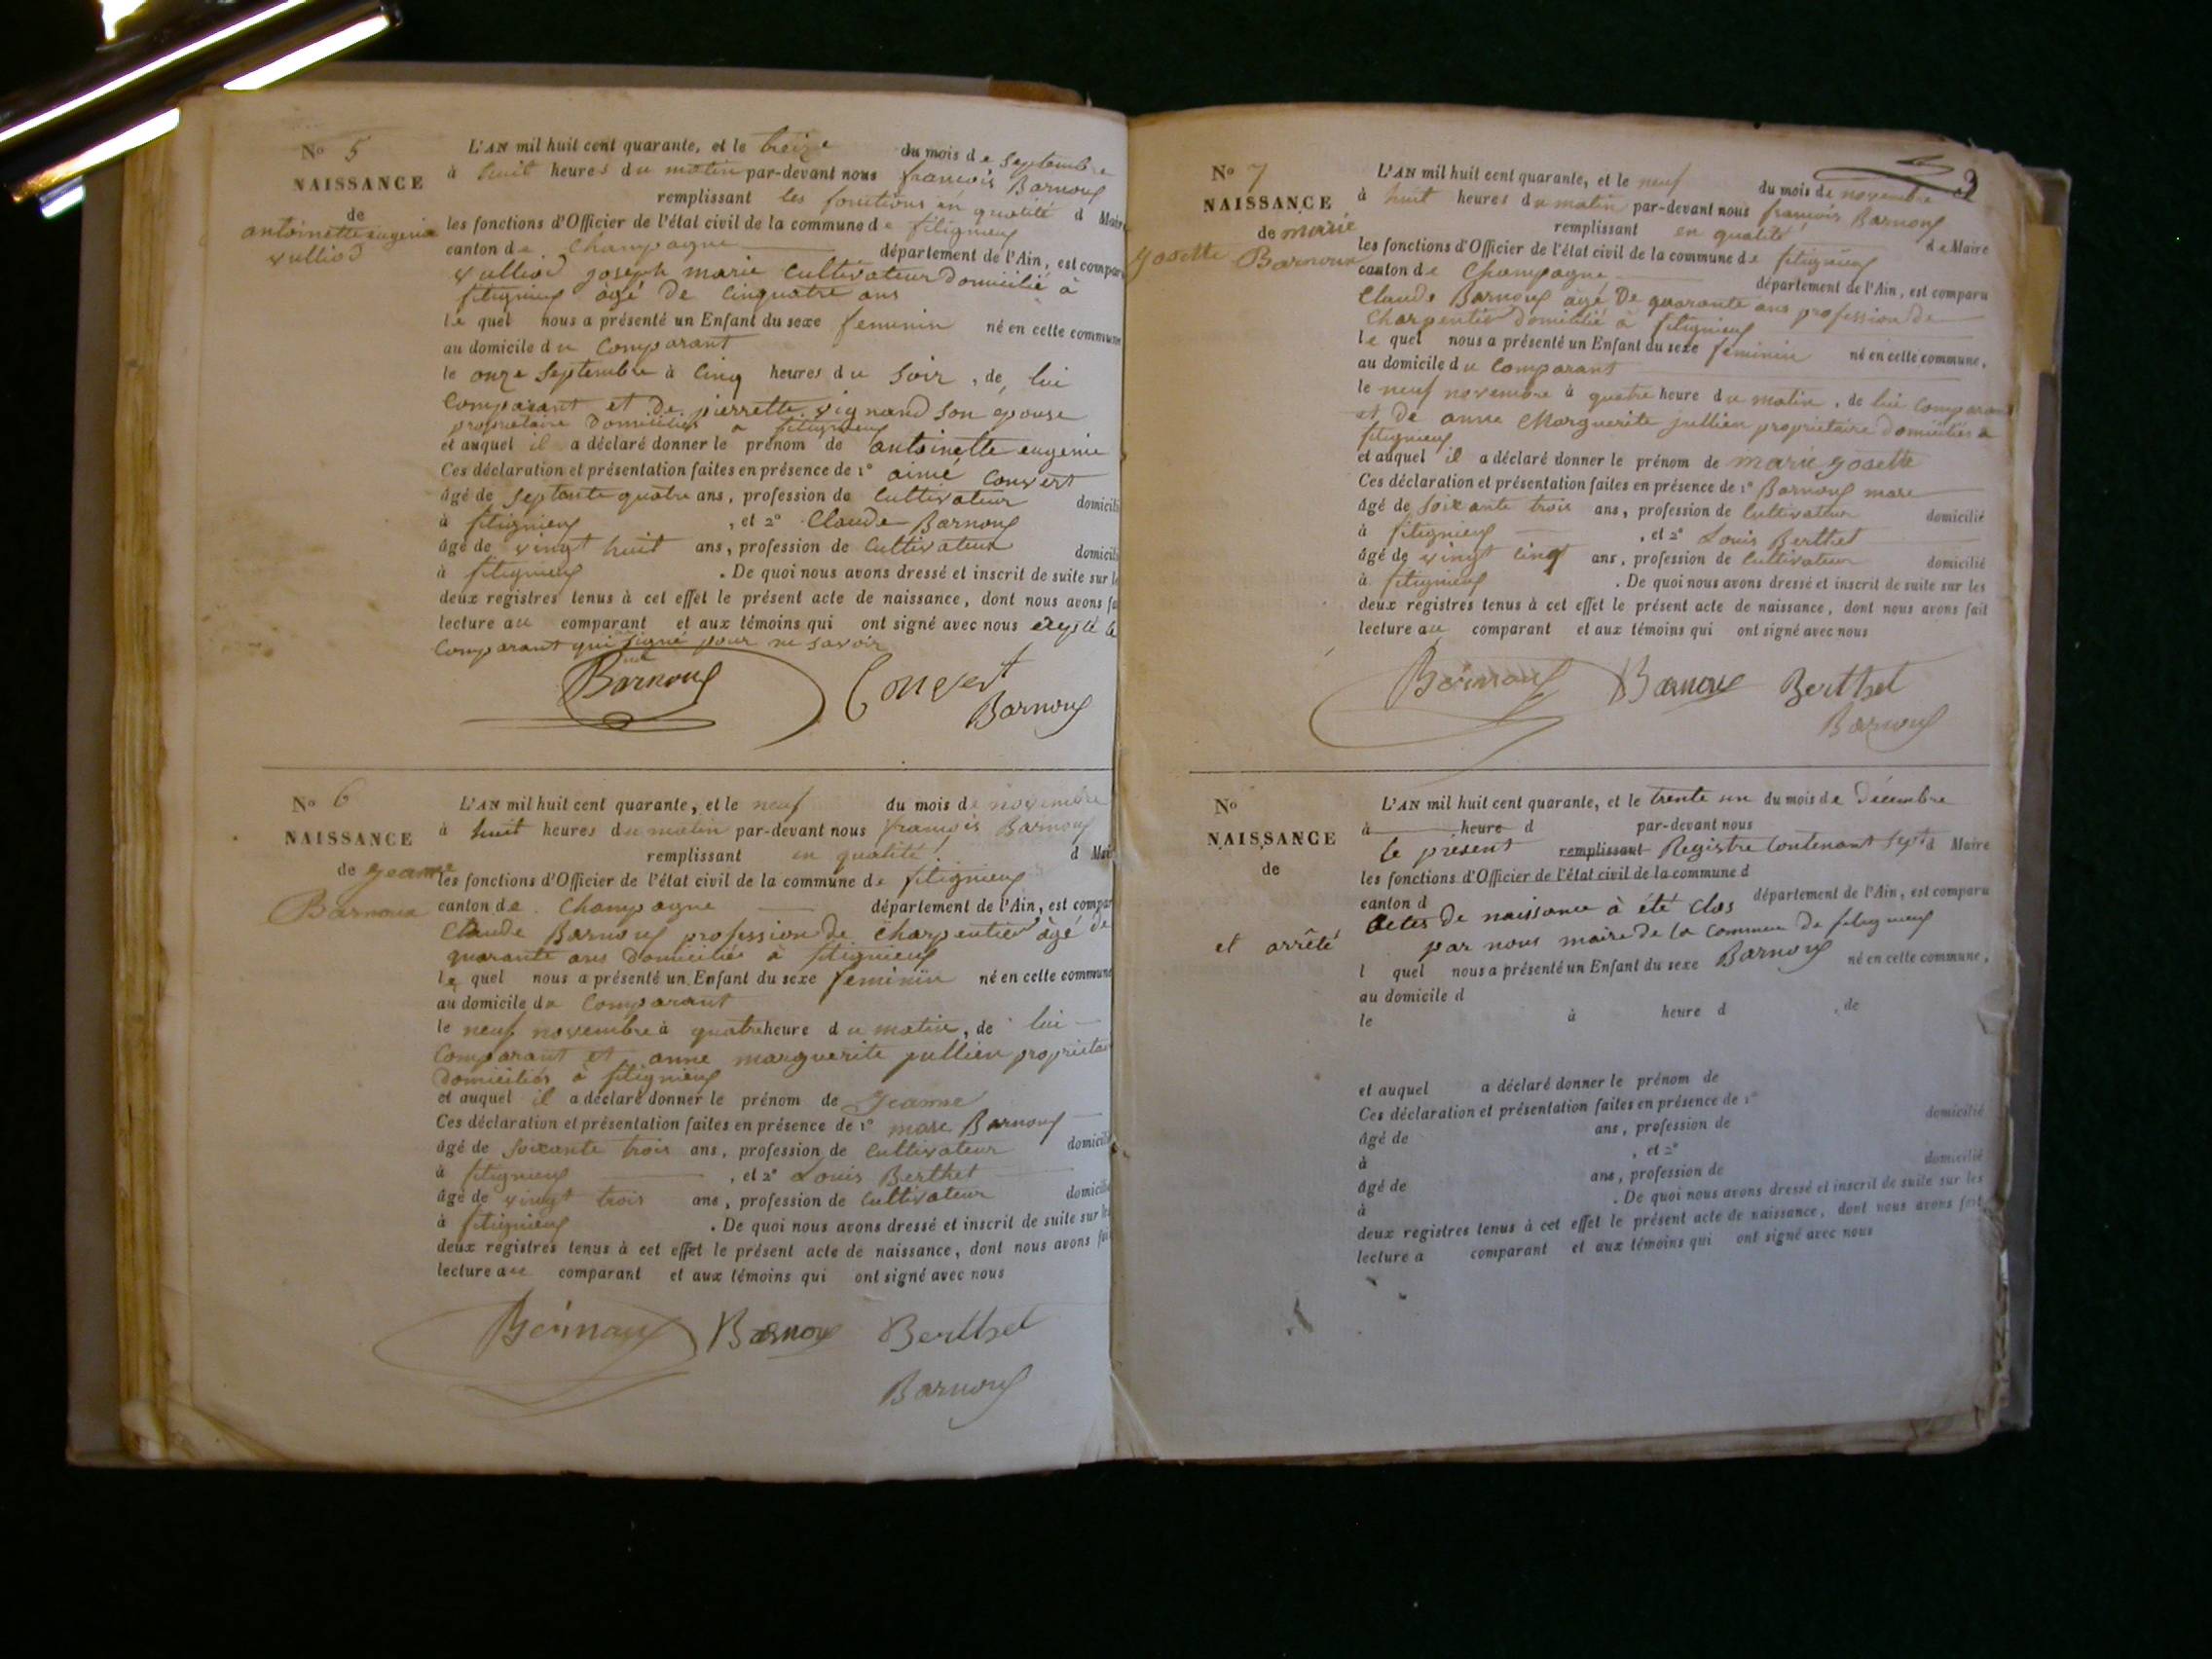 No 5
NAISSANCE
de
antoinette eugenie
vulliod
L'AN mil huit cent quarante, et le treize du mois de Septembre
à huit heures du matin par-devant nous françois Barnoux
remplissant les fonctions en qualité d Maire
les fonctions d'Officier de l'état civil de la commune de fitignieux
canton de Champagne département de l'Ain, est comparu
vulliod joseph marie Cultivateur Domicilié à
fitignieux âgé De Cinquatre ans
le quel nous a présenté un Enfant du sexe feminin né en cette commune
au domicile du Comparant
le onze Septembre à Cinq heures du Soir, de lui
Comparant et De pierrette vignand Son épouse
proprietaire Domiciliés a fitignieux
et auquel il a déclaré donner le prénom de antoinette eugenie
Ces déclaration et présentation faites en présence de 1° aimé Convert
âgé de Septante quatre ans, profession de Cultivateur domicilié
à fitignieux, et 2° Claude Barnoux
âgé de vingt huit ans, profession de Cultivateur domicilié
à fitignieux. De quoi nous avons dressé et inscrit de suite sur le
deux registres tenus à cet effet le présent acte de naissance, dont nous avons fa
lecture au comparant et aux témoins qui ont signé avec nous le
Comparant qui signé pour ne savoir
Barnoux Convert
Barnoux
No 6
NAISSANCE
de Jeanne
Barnoux
L'AN mil huit cent quarante, et le neuf du mois de novembre
à huit heures du matin par-devant nous françois Barnoux
remplissant en qualité d Mai
les fonctions d'Officier de l'état civil de la commune de fitignieux
canton de Champagne département de l'Ain, est compar
Claude Barnoux profession de Charpentier âgé de
quarante ans Domiciliés à fitignieux
le quel nous a présenté un Enfant du sexe feminin né en cette commune
au domicile du Comparant
le neuf novembre à quatre heure du matin, de lui
Comparant et anne marguerite jullien proprietai
Domiciliés à fitignieux
et auquel il a déclaré donner le prénom de Jeanne
Ces déclaration et présentation faites en présence de 1° marc Barnoux
âgé de Soixante trois ans, profession de Cultivateur domicilié
à fitignieux, et 2° Louis Berthet
âgé de vingt trois ans, profession de Cultivateur domicilié
à fitignieux. De quoi nous avons dressé et inscrit de suite sur les
deux registres tenus à cet effet le présent acte de naissance, dont nous avons fai
lecture au comparant et aux témoins qui ont signé avec nous
Barnoux Barnoux Berthet
Barnoux
3
No 7
NAISSANCE
de marie
Josette Barnoux
L'AN mil huit cent quarante, et le neuf du mois de novembre
à huit heures du matin par-devant nous françois Barnoux
remplissant en qualité de Maire
les fonctions d'Officier de l'état civil de la commune de fitignieux
canton de Champagne département de l'Ain, est comparu
Claude Barnoux âgé De quarante ans profession De
Charpentier Domicilié à fitignieux
le quel nous a présenté un Enfant du sexe feminin né en cette commune,
au domicile du Comparant
le neuf novembre à quatre heure du matin, de lui Comparant
et De anne Marguerite jullien proprietaire Domiciliés a
fitignieux
et auquel il a déclaré donner le prénom de marie Josette
Ces déclaration et présentation faites en présence de 1° Barnoux marc
âgé de Soixante trois ans, profession de Cultivateur domicilié
à fitignieux, et 2° Louis Berthet
âgé de vingt Cinq ans, profession de Cultivateur domicilié
à fitignieux. De quoi nous avons dressé et inscrit de suite sur les
deux registres tenus à cet effet le présent acte de naissance, dont nous avons fait
lecture au comparant et aux témoins qui ont signé avec nous
Barnoux Barnoux Berthet
Barnoux
No
NAISSANCE
de
L'AN mil huit cent quarante, et le trente un du mois de Décembre
à heure d par-devant nous
le présent remplissant Registre Contenant Sept d Maire
les fonctions d'Officier de l'état civil de la commune d
canton d département de l'Ain, est comparu
actes de naissance à été clos
et arrêté par nous maire de la commune de fitignieux
l quel nous a présenté un Enfant du sexe Barnoux né en cette commune,
au domicile d
le à heure d, de
et auquel a déclaré donner le prénom de
Ces déclaration et présentation faites en présence de 1°
âgé de ans, profession de domicilié
à, et 2°
âgé de ans, profession de domicilié
à. De quoi nous avons dressé et inscrit de suite sur les
deux registres tenus à cet effet le présent acte de naissance, dont nous avons fait
lecture a comparant et aux témoins qui ont signé avec nous